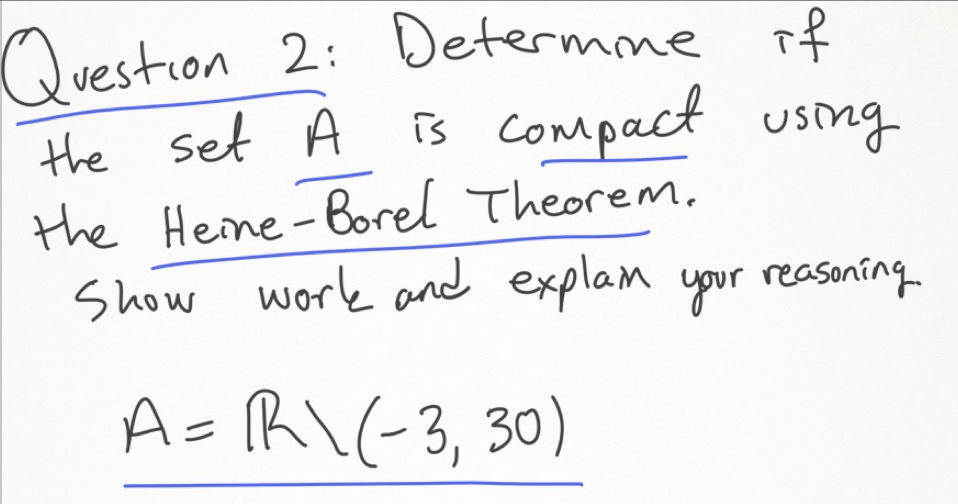 Question 2: Determine if
the set A is compact using
the Heine-Borel Theorem.
Show work and explain your reasoning.
A = ℝ \ (-3, 30)